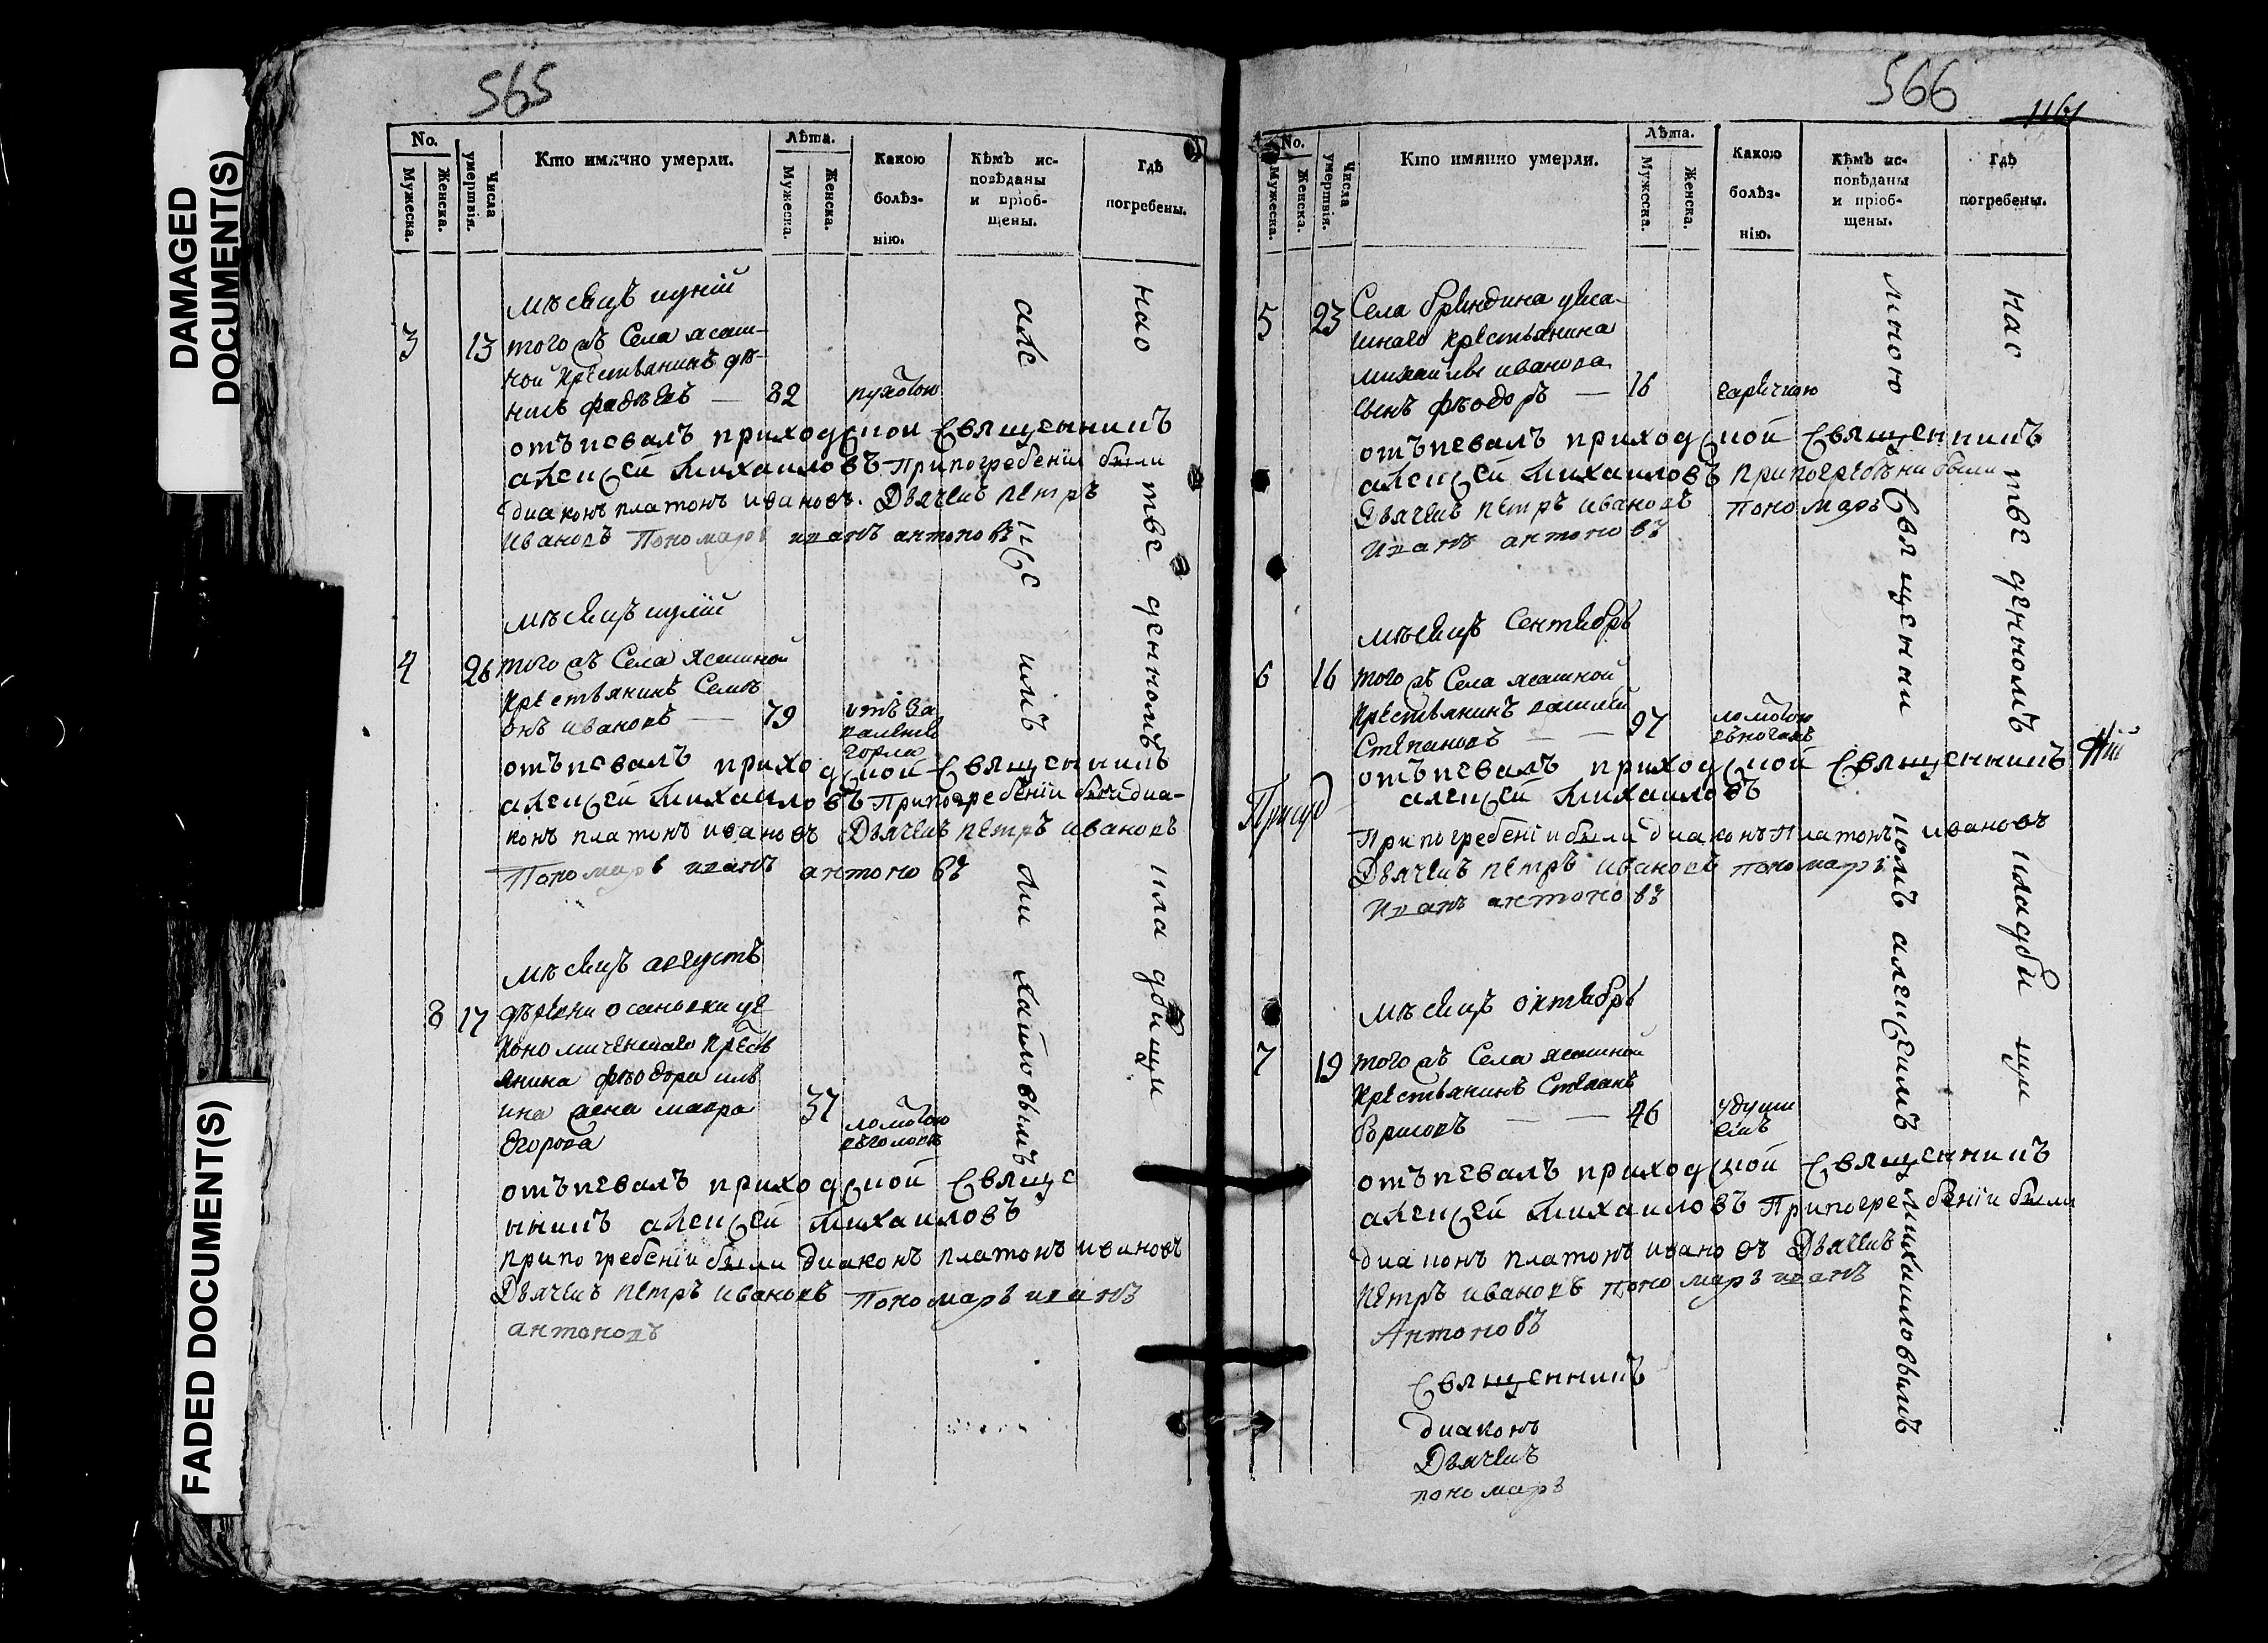 DAMAGED
DOCUMENT(S)
FADED DOCUMENT(S)
565
No.
Мужеска.
Женска.
Числа
умертвія.
Кто имянно умерли.
Лѣта.
Мужеска.
Женска.
Какою
болѣз-
нію.
Кѣмъ ис-
повѣданы
и пріоб-
щены.
Гдѣ
погребены.
мѣсяцъ иуній
3 13 того жъ Села ясаш-
ной крестьянинъ
фадѣевъ — 82
отъпевалъ приходской Священникъ
алексей Михаиловъ При погребеніи были
диаконъ платонъ ивановъ. Дьячекъ петръ
ивановъ Пономарь иванъ антоновъ
мѣсяцъ иулій
4 26 того жъ Села ясашной
крестьянинъ Семи
онъ ивановъ — 79
горла
отъпевалъ приходской Священникъ
алексей Михаиловъ При погребеніи были диа-
конъ платонъ ивановъ Дьячекъ петръ ивановъ
Пономарь иванъ антоновъ
мѣсяцъ августъ
8 17 деревни осановки це
кономическаго крестьв
янина фѣодора иль
ина жена мавра
Егорова 37 ломотою
въ головѣ
отъпевалъ приходской Свяще
нникъ алексей Михаиловъ
при погребеніи были диаконъ платонъ ивановъ
Дьячекъ петръ ивановъ Пономарь иванъ
антоновъ
алексеикимъ михайловымъ
на обще ственномъ кла дбищи
566
1161
No.
Мужеска.
Женска.
Числа
умертвія.
Кто имянно умерли.
Лѣта.
Мужеска.
Женска.
Какою
болѣз-
нію.
Кѣмъ ис-
повѣданы
и пріоб-
щены.
Гдѣ
погребены.
5 23 Села
шнаго крестьянина
михаилы иванова
сынъ фѣодоръ — 16 гарячкою
отъпевалъ приходской Священникъ
алексей Михаиловъ При погребѣни были
Дьячекъ петръ ивановъ Пономарь
Иванъ антоновъ
мѣсяцъ Сентябрь
6 16 того жъ Села ясашной
крестьянинъ василей
Степановъ — 97 ломотою
въ ногахъ
отъпевалъ приходской Священникъ
алексей Михаиловъ
При погребеніи были диаконъ Платонъ ивановъ
Дьячекъ петръ ивановъ пономарь
Иванъ антоновъ
мѣсяцъ октябрь
7 19 того жъ Села ясашной
крестьянинъ Степанъ
борисовъ — 46 удуши
емъ
отъпевалъ приходской Священникъ
алексей Михаиловъ При погребеніи были
диаконъ платонъ ивановъ Дьячекъ
петръ ивановъ пономарь иванъ
Антоновъ
Священникъ
диаконъ
Дьячекъ
пономарь
мною Священникомъ алексеимъ михаиловымъ